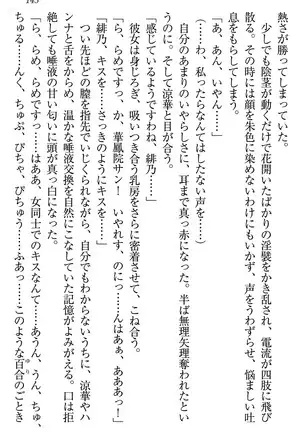 熱さが勝ってしまっていた。
少しでも陰茎が動くだけで花開いたばかりの淫襞がかき乱され、電流が四肢に飛び
散る。その時には顔を朱色に染めないわけにもいかず、声をうわずらせ、悩ましい吐
息をもらしてしまう。
「あ、あん、いやん……」
（……わ、私ったらなんてはしたない声を……）
自分のあまりのいやらしさに、耳まで真っ赤になった。半ば無理矢理奪われたとい
うのに。そして、涼華と目が合う。
「感じているようですわね、緋乃……」
彼女は身じろぎ、吸いつき合う乳房をさらに密着させて、こね合う。
「ら、らめですっか、華鳳院サン！　いやれす、のにっ……んはぁ、あああっ！」
「緋乃、キスを……さっきのようにキスを……」
つい先ほどの膣を指先でいじくられながら、自分でもわからないうちに、涼華やハ
ンナと舌をからめ、温かな唾液交換を自然にこなしていた記憶がよみがえる。口は拒
絶しても唾液の甘い匂いに頭が真っ白になった。
「ら、らめ、らめですっ……はああ、女同士でのキスなんて……あうん、うん、ちゅ、
ちゅる……んく、ちゅぷ、ぴちゃ、ぴちゅう……ふあっ……このような百合のごとき